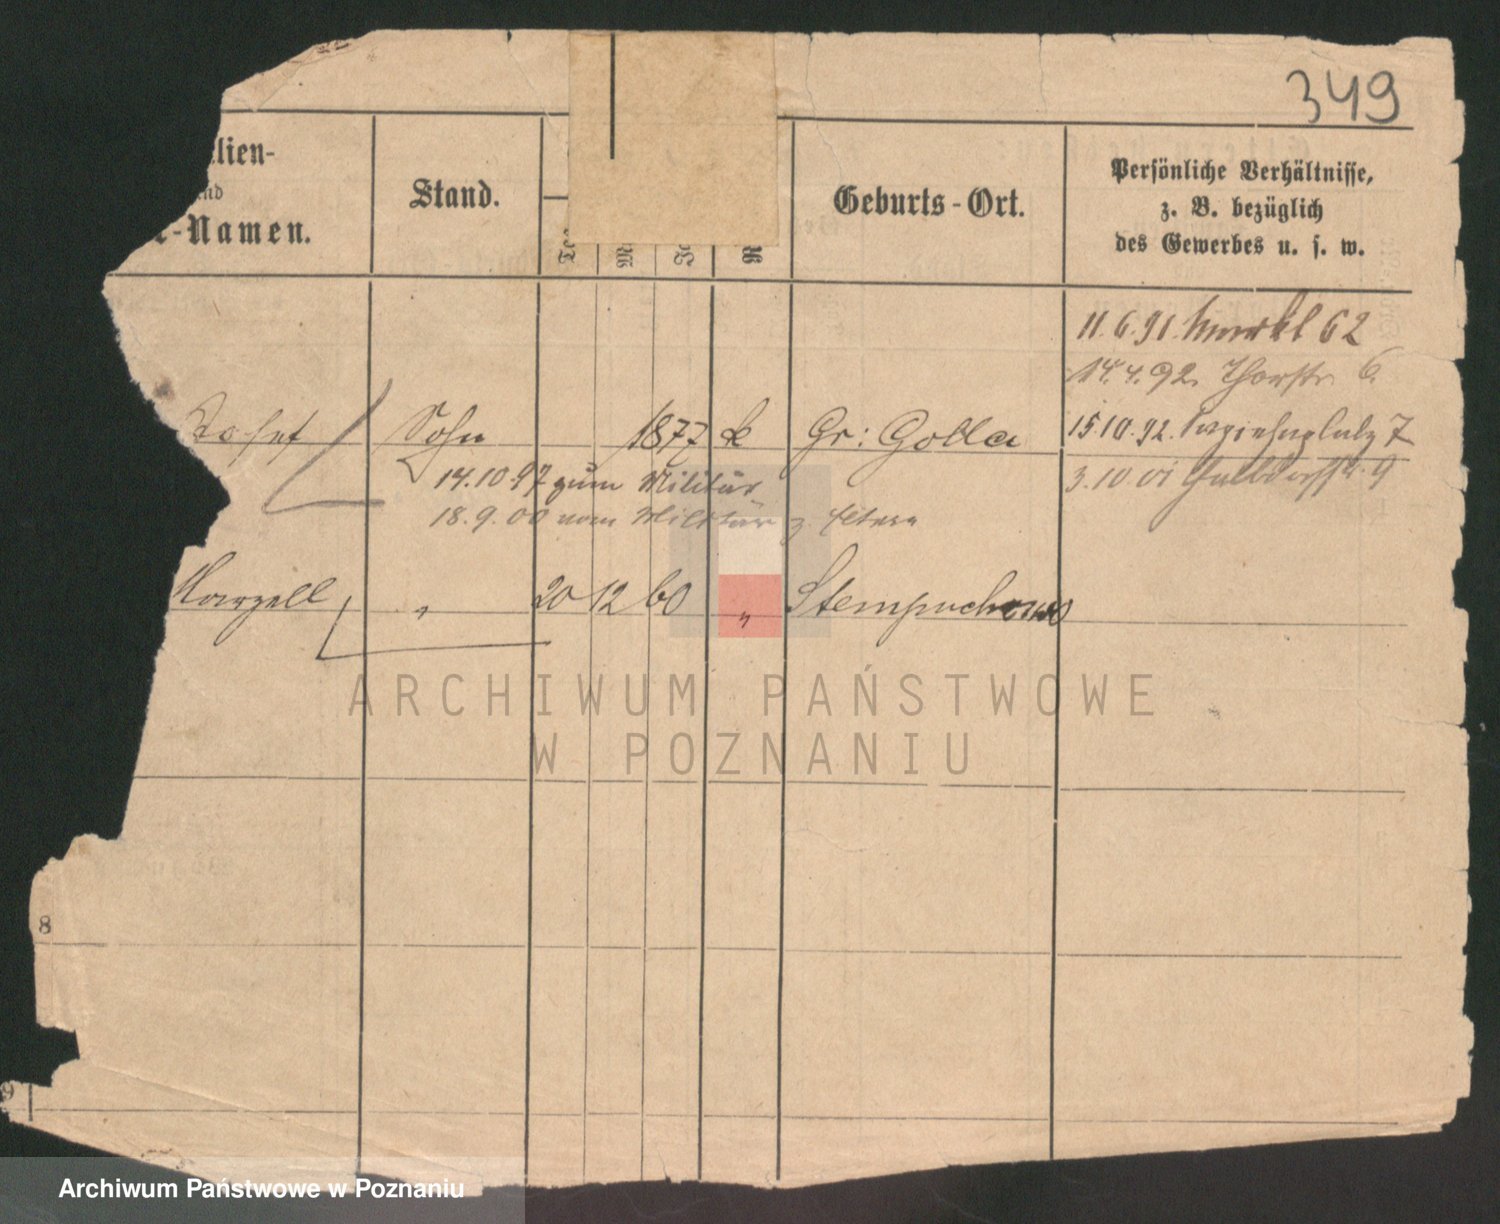 349
lien-
nd
-Namen.
Stand.
Geburts-Ort.
Persönliche Verhältnisse,
z. B. bezüglich
des Gewerbes u. s. w.
11.6.91. 62
14.4.92. Thorstr. 6
Josef Sohn 1877 k Gr: Golla 15.10.92. 7
14.10.97 zum Militär
3.10.01 9
18.9.00 vom Militär z. Eltern
Marzell " 20 12 60 " Stempuchowo
ARCHIWUM PAŃSTWOWE
W POZNANIU
8
9
Archiwum Państwowe w Poznaniu